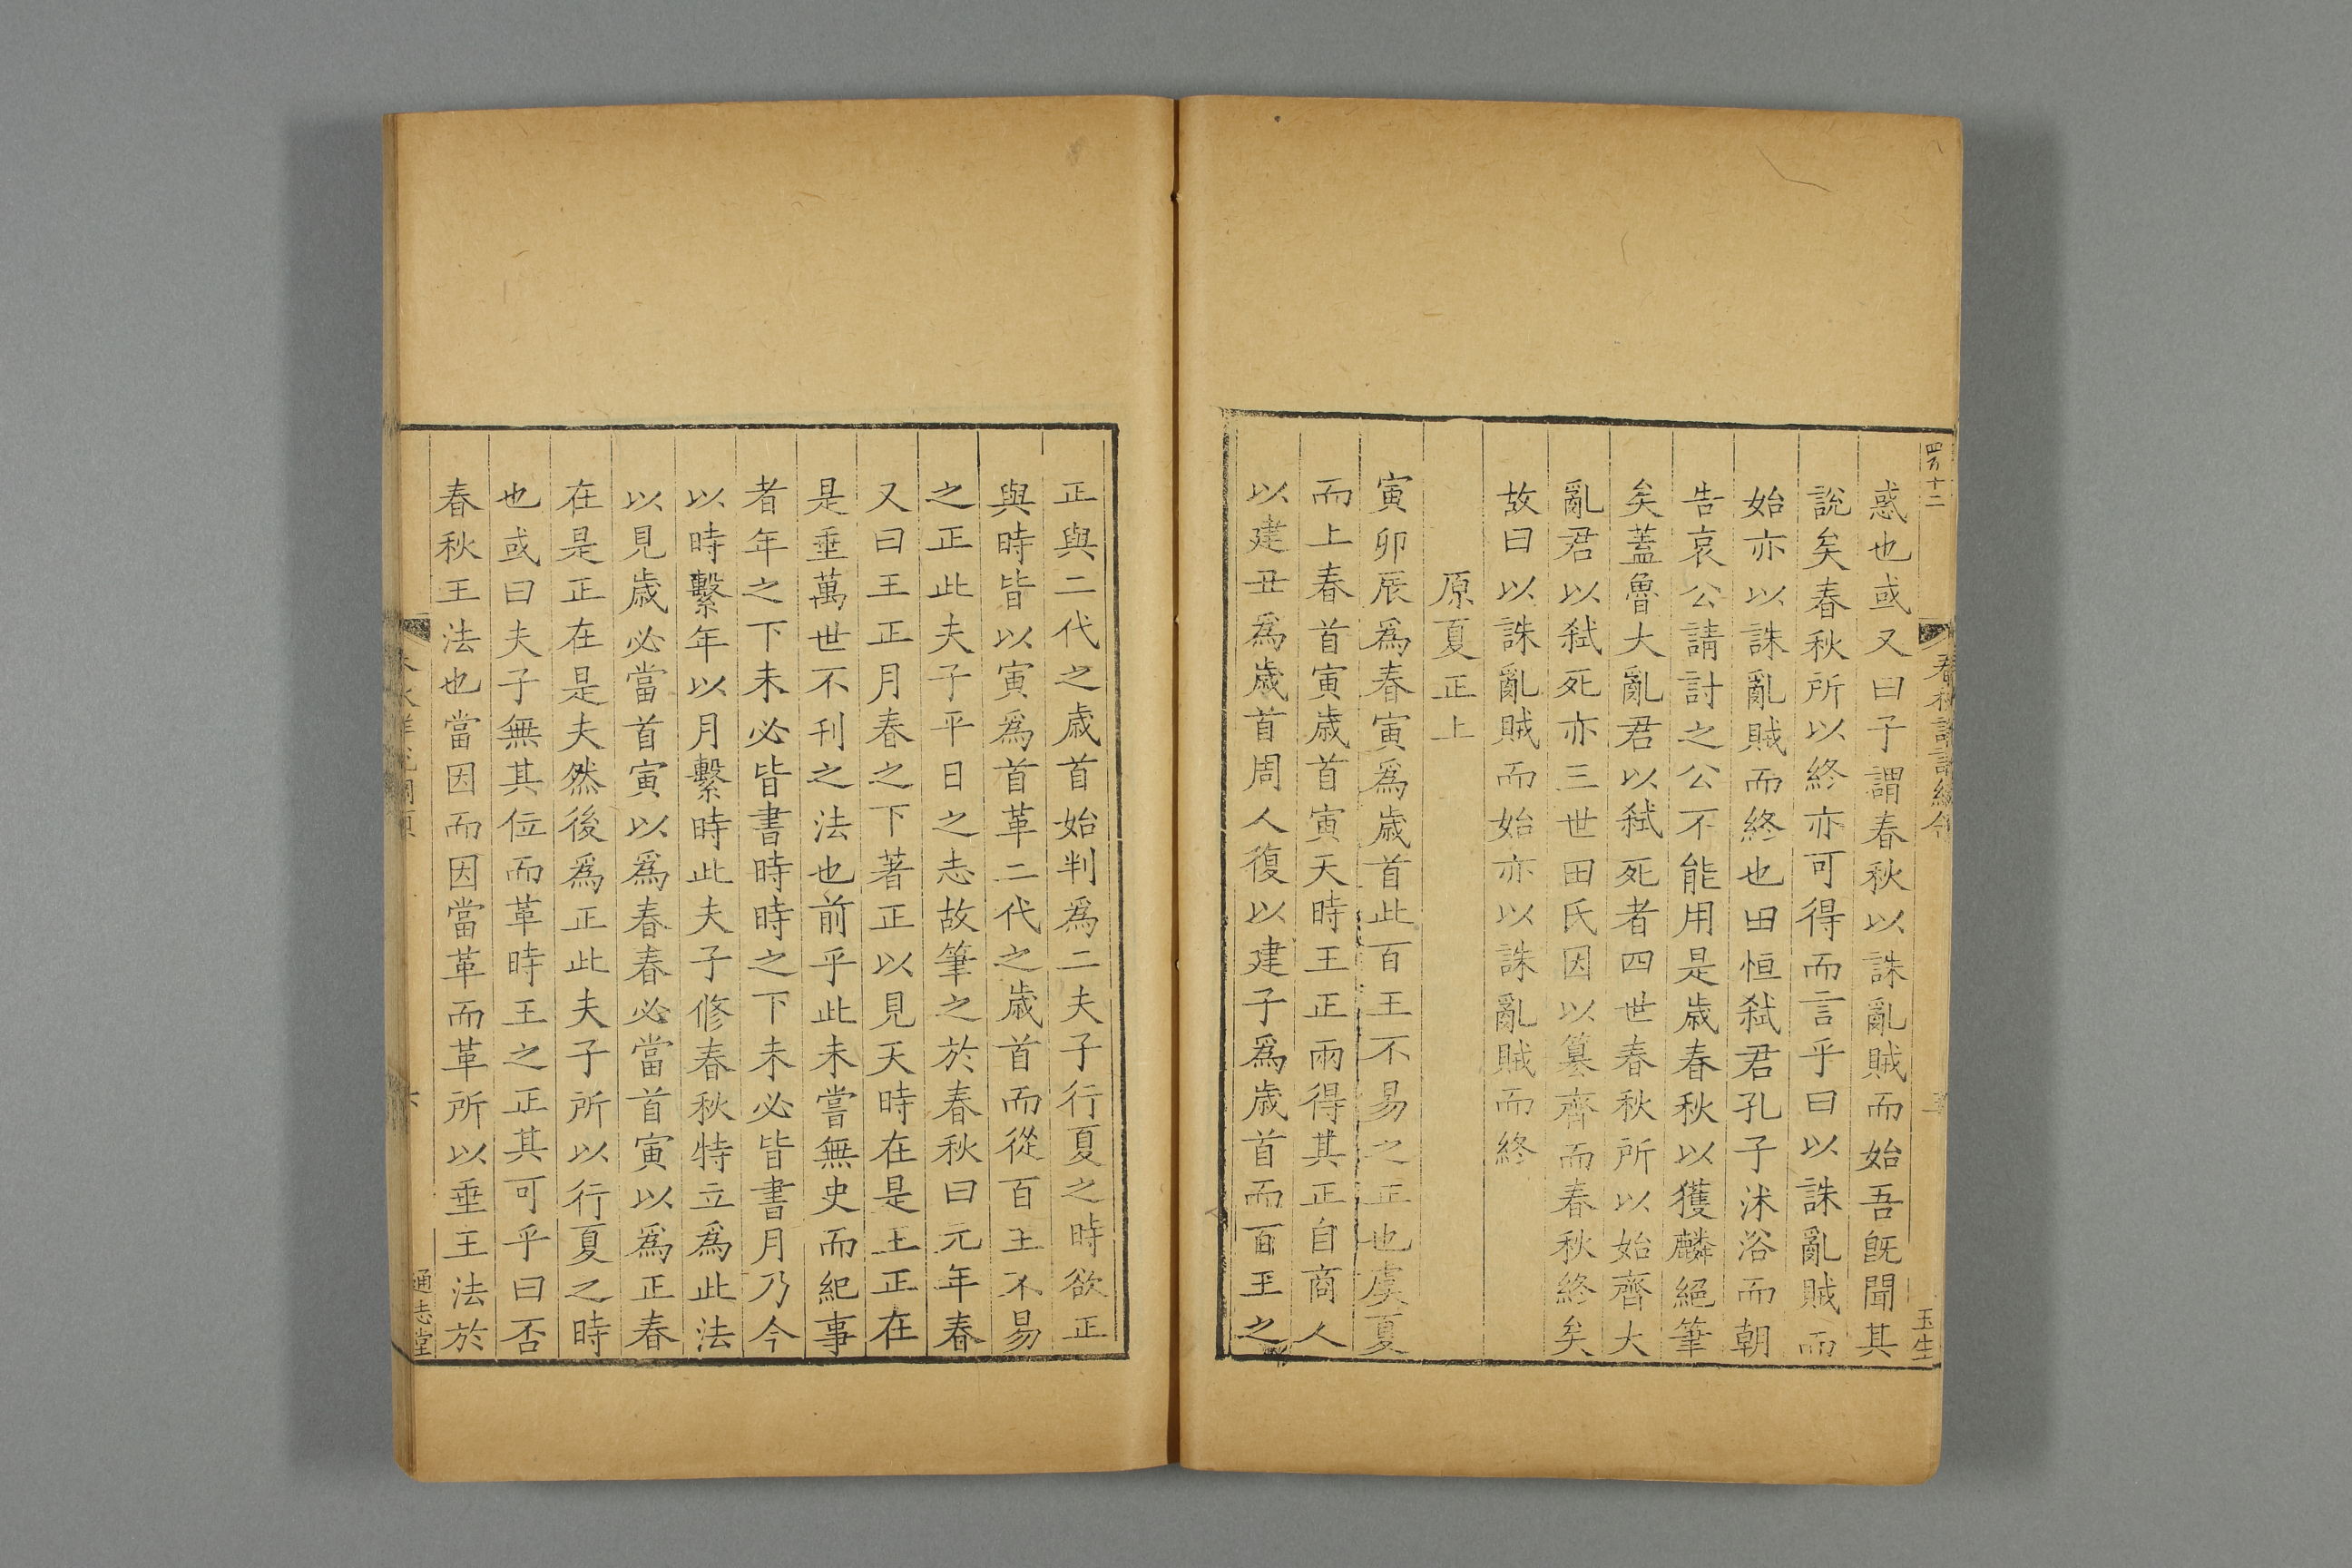 惑也或又曰子謂春秋以誅亂賊而始吾旣聞其
說矣春秋所以終亦可得而言乎曰以誅亂賊而
始亦以誅亂賊而終也田恒弑君孔子沐浴而朝
告哀公請討之公不能用是歳春秋以獲麟絕筆
矣蓋魯大亂君以弑死者四世春秋所以始齊大
亂君以弑死亦三世田氏因以篡齊而春秋終矣
故曰以誅亂賊而始亦以誅亂賊而終
原夏正上
寅卯辰爲春寅爲歳首此百王不易之正也虞夏
而上春首寅歳首寅天時王正兩得其正自商人
以建丑爲歳首周人復以建子爲歳首而百王之
正與二代之歳首始判爲二夫子行夏之時欲正
與時皆以寅爲首革二代之歳首而從百王不易
之正此夫子平日之志故筆之於春秋曰元年春
又曰王正月春之下著正以見天時在是王正在
是垂萬世不刊之法也前乎此未嘗無史而紀事
者年之下未必皆書時時之下未必皆書月乃今
以時繫年以月繫時此夫子修春秋特立爲此法
以見歳必當首寅以爲春春必當首寅以爲正春
在是正在是夫然後爲正此夫子所以行夏之時
也或曰夫子無其位而革時王之正其可乎曰否
春秋王法也當因而因當革而革所以垂王法於
通志堂